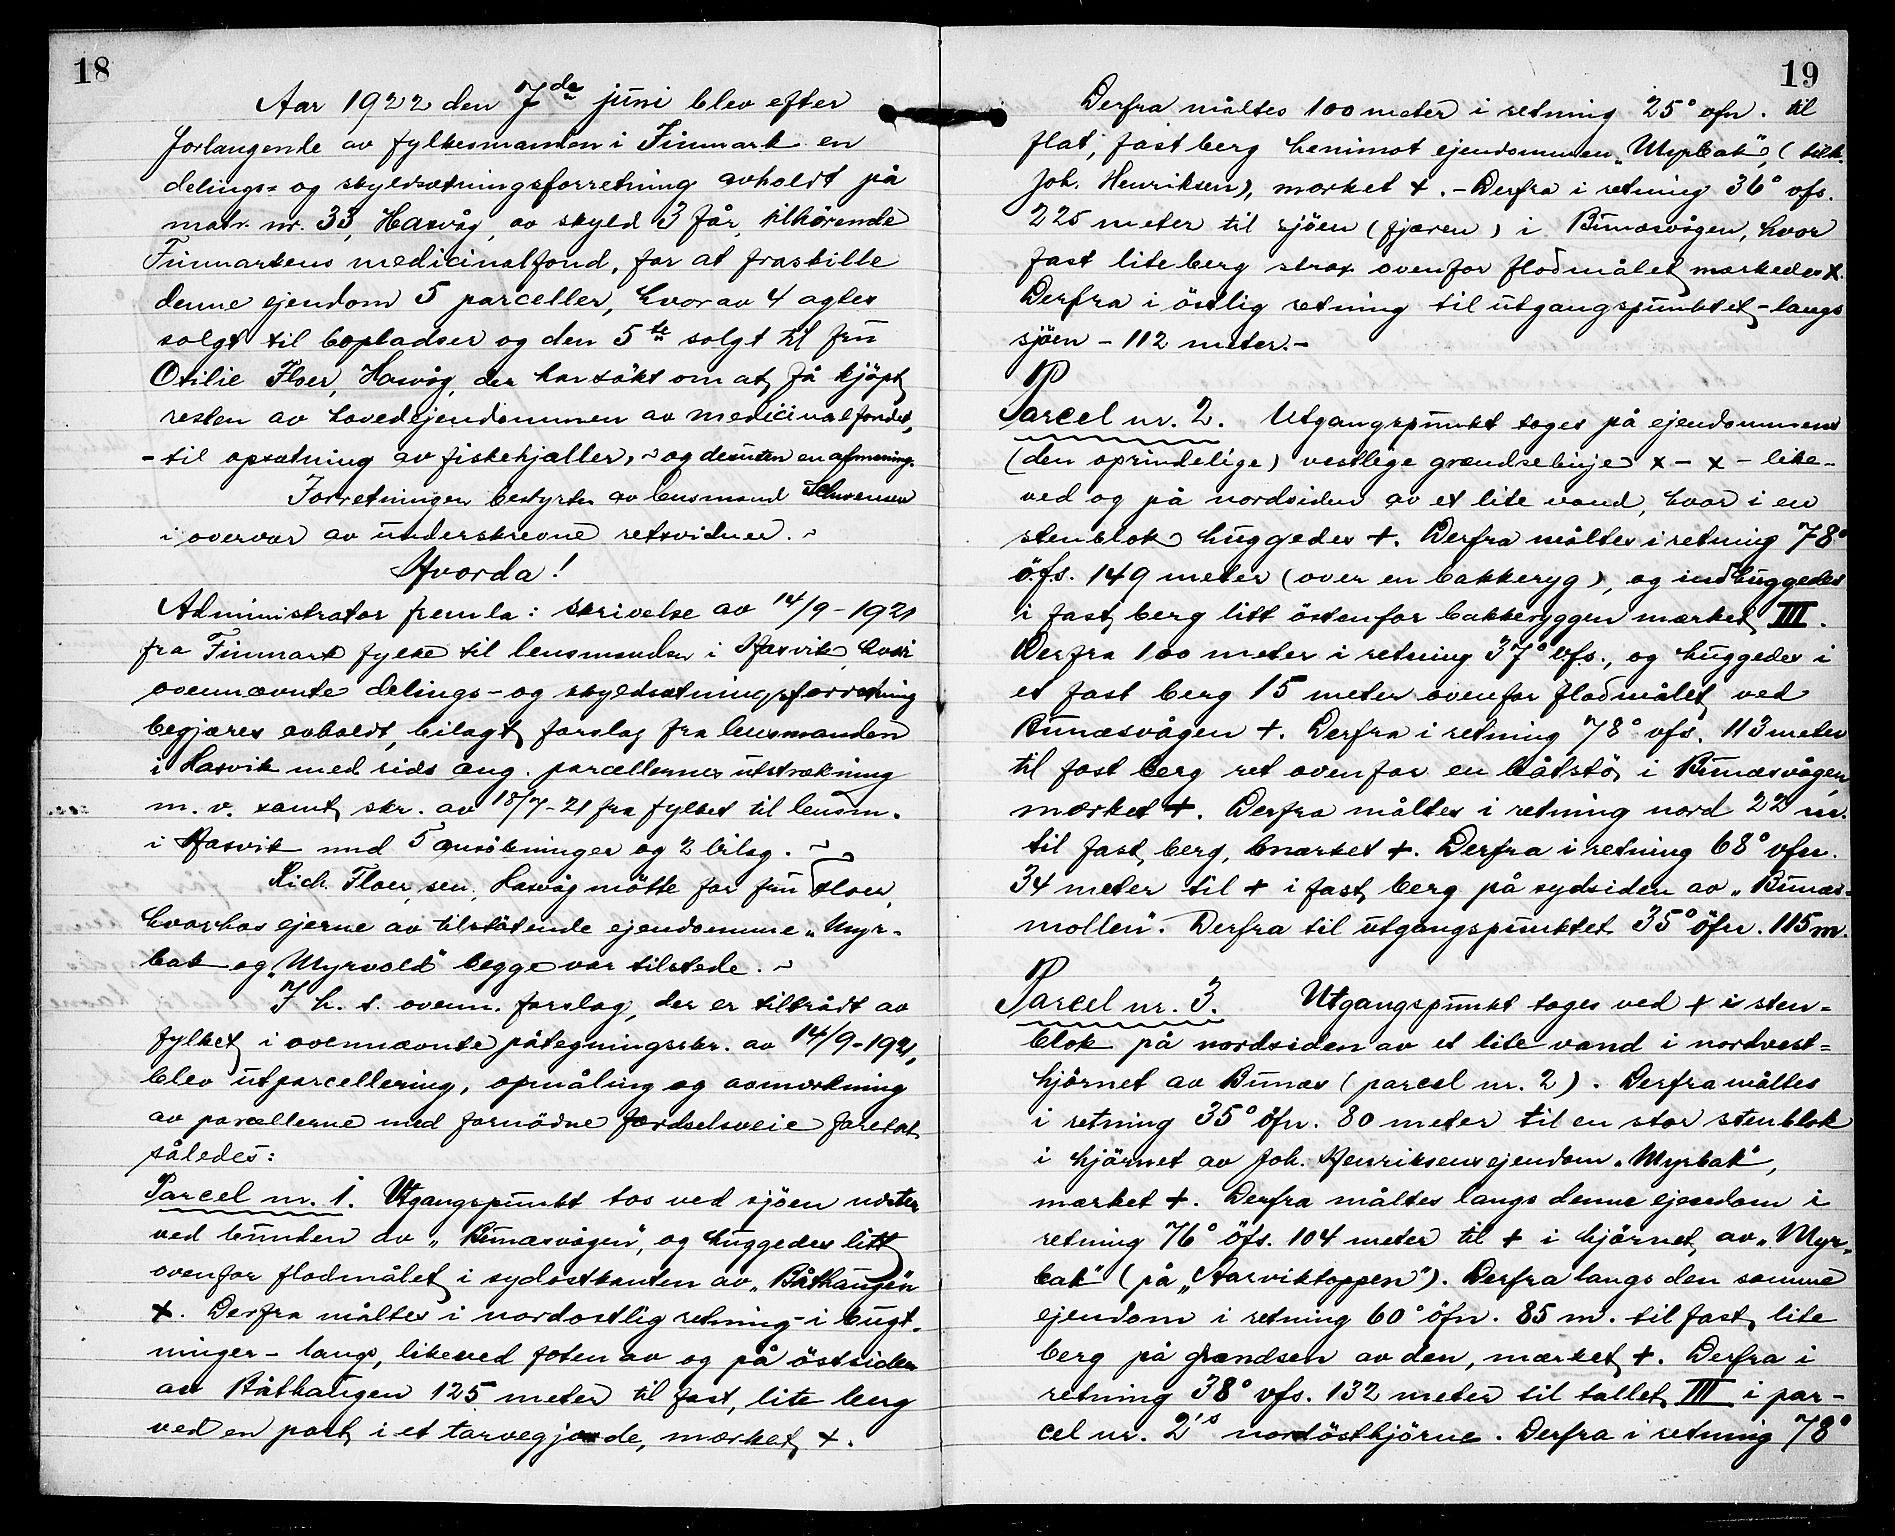 18
Aar 1922 den 7de juni blev efter
forlangende av fylkesmanden i Finmark en
delings- og skyldsætningsforretning avholdt på
matr. nr. 33, Hasvåg, av skyld 3 får, tilhörende
Finmarkens medicinalfond, for at fraskille
denne ejendom 5 parceller, hvorav 4 agtes
solgt til bopladser og den 5te solgt til fru
Otilie Floer, Hasvåg, der har sökt om at få kjöpt
resten av hovedejendommen av medicinalfondet,
- til opsætning av fiskehjæller, - og desuten en
Forretningen bestyrtes av lensmand
i overvær av underskrevne retsvidner. -
Hvorda!
Administrator fremla: skrivelse av 14/9-1921
fra Finmark fylke til lensmanden i Hasvik hvori
ovennævnte delings- og skyldsætningsforretning
begjæres avholdt, bilagt forslag fra lensmanden
i Hasvik med rids ang. parcellernes utstrækning
m. v. samt skr. av 18/7-21 fra fylket til lensm.
i Hasvik med 5 ansökninger og 2 bilag. -
Rich. Floer, sen., Hasvåg mötte for fru Floer,
hvorhos ejerne av tilstötende ejendomme „Myr-
bak og „Myrvold" begge var tilstede. -
I h. t. ovenn. forslag, der er tiltrådt av
fylket i ovennævnte påtegningsskr. av 14/9-1921,
blev utparcellering, opmåling og avmerkning
av parcellerne med fornödne færdselsveie foretat
således:
Parcel nr. 1. Utgangspunkt tos ved sjöen
ved bunden av „Bunæsvågen", og huggedes litt
ovenfor flodmålet i sydostkanten av „Båthaugen"
+. Derfra måltes i nordostlig retning - i bugt-
ninger - langs, likeved foten av og på östsiden
av Båthaugen 125 meter til fast, lite berg
ved en port i et tarvegjærde, mærket +.
19
Derfra måltes 100 meter i retning 25° vfn. til
flat, fast berg henimot ejendommen „Myrbak", (tilh.
Joh. Henriksen), mærket +. - Derfra i retning 36° vfs.
225 meter til sjöen (fjæren) i Bunæsvågen, hvor
fast lite berg strax ovenfor flodmålet mærkedes +.
Derfra i östlig retning til utgangspunktet - langs
sjöen - 112 meter. -
Parcel nr. 2. Utgangspunkt toges på ejendommens
(den oprindelige) vestlige grændselinje x - x - like-
ved og på nordsiden av et lite vand, hvor i en
stenblok huggedes +. Derfra måltes i retning 78°
öfs. 149 meter (over en bakkeryg), og indhuggedes
i fast berg litt östenfor bakkeryggen mærket III.
Derfra 100 meter i retning 37° vfs., og huggedes i
et fast berg 15 meter ovenfor flodmålet ved
Bunæsvågen +. Derfra i retning 78° vfs. 113 meter
til fast berg ret ovenfor en båtstö i Bunæsvågen
mærket +. Derfra måltes i retning nord 22 m.
til fast berg, mærket +. Derfra i retning 68° vfn.
34 meter til + i fast berg på sydsiden av „Bunæs-
mollen". Derfra til utgangspunktet 35° öfn. 115 m.
Parcel nr. 3. Utgangspunkt toges ved + i sten-
blok på nordsiden av et lite vand i nordvest-
hjörnet av Bunæs (parcel nr. 2). Derfra måltes
i retning 35° öfn. 80 meter til en stor stenblok
i hjörnet av Joh. Henriksens ejendom „Myrbak",
mærket +. Derfra måltes langs denne ejendom i
retning 76° öfs. 104 meter til + i hjörnet av „Myr-
bak" (på „Aarviktoppen"). Derfra langs den samme
ejendom i retning 60° öfn. 85 m. til fast, lite
berg på grændsen av den, mærket +. Derfra i
retning 38° vfs. 132 meter til tallet III i par-
cel nr. 2's nordösthjörne. Derfra i retning 78°